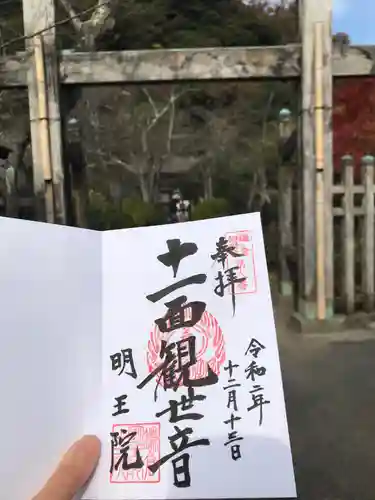 奉拝
令和二年
十二月十三日
十一面観世音
明王院